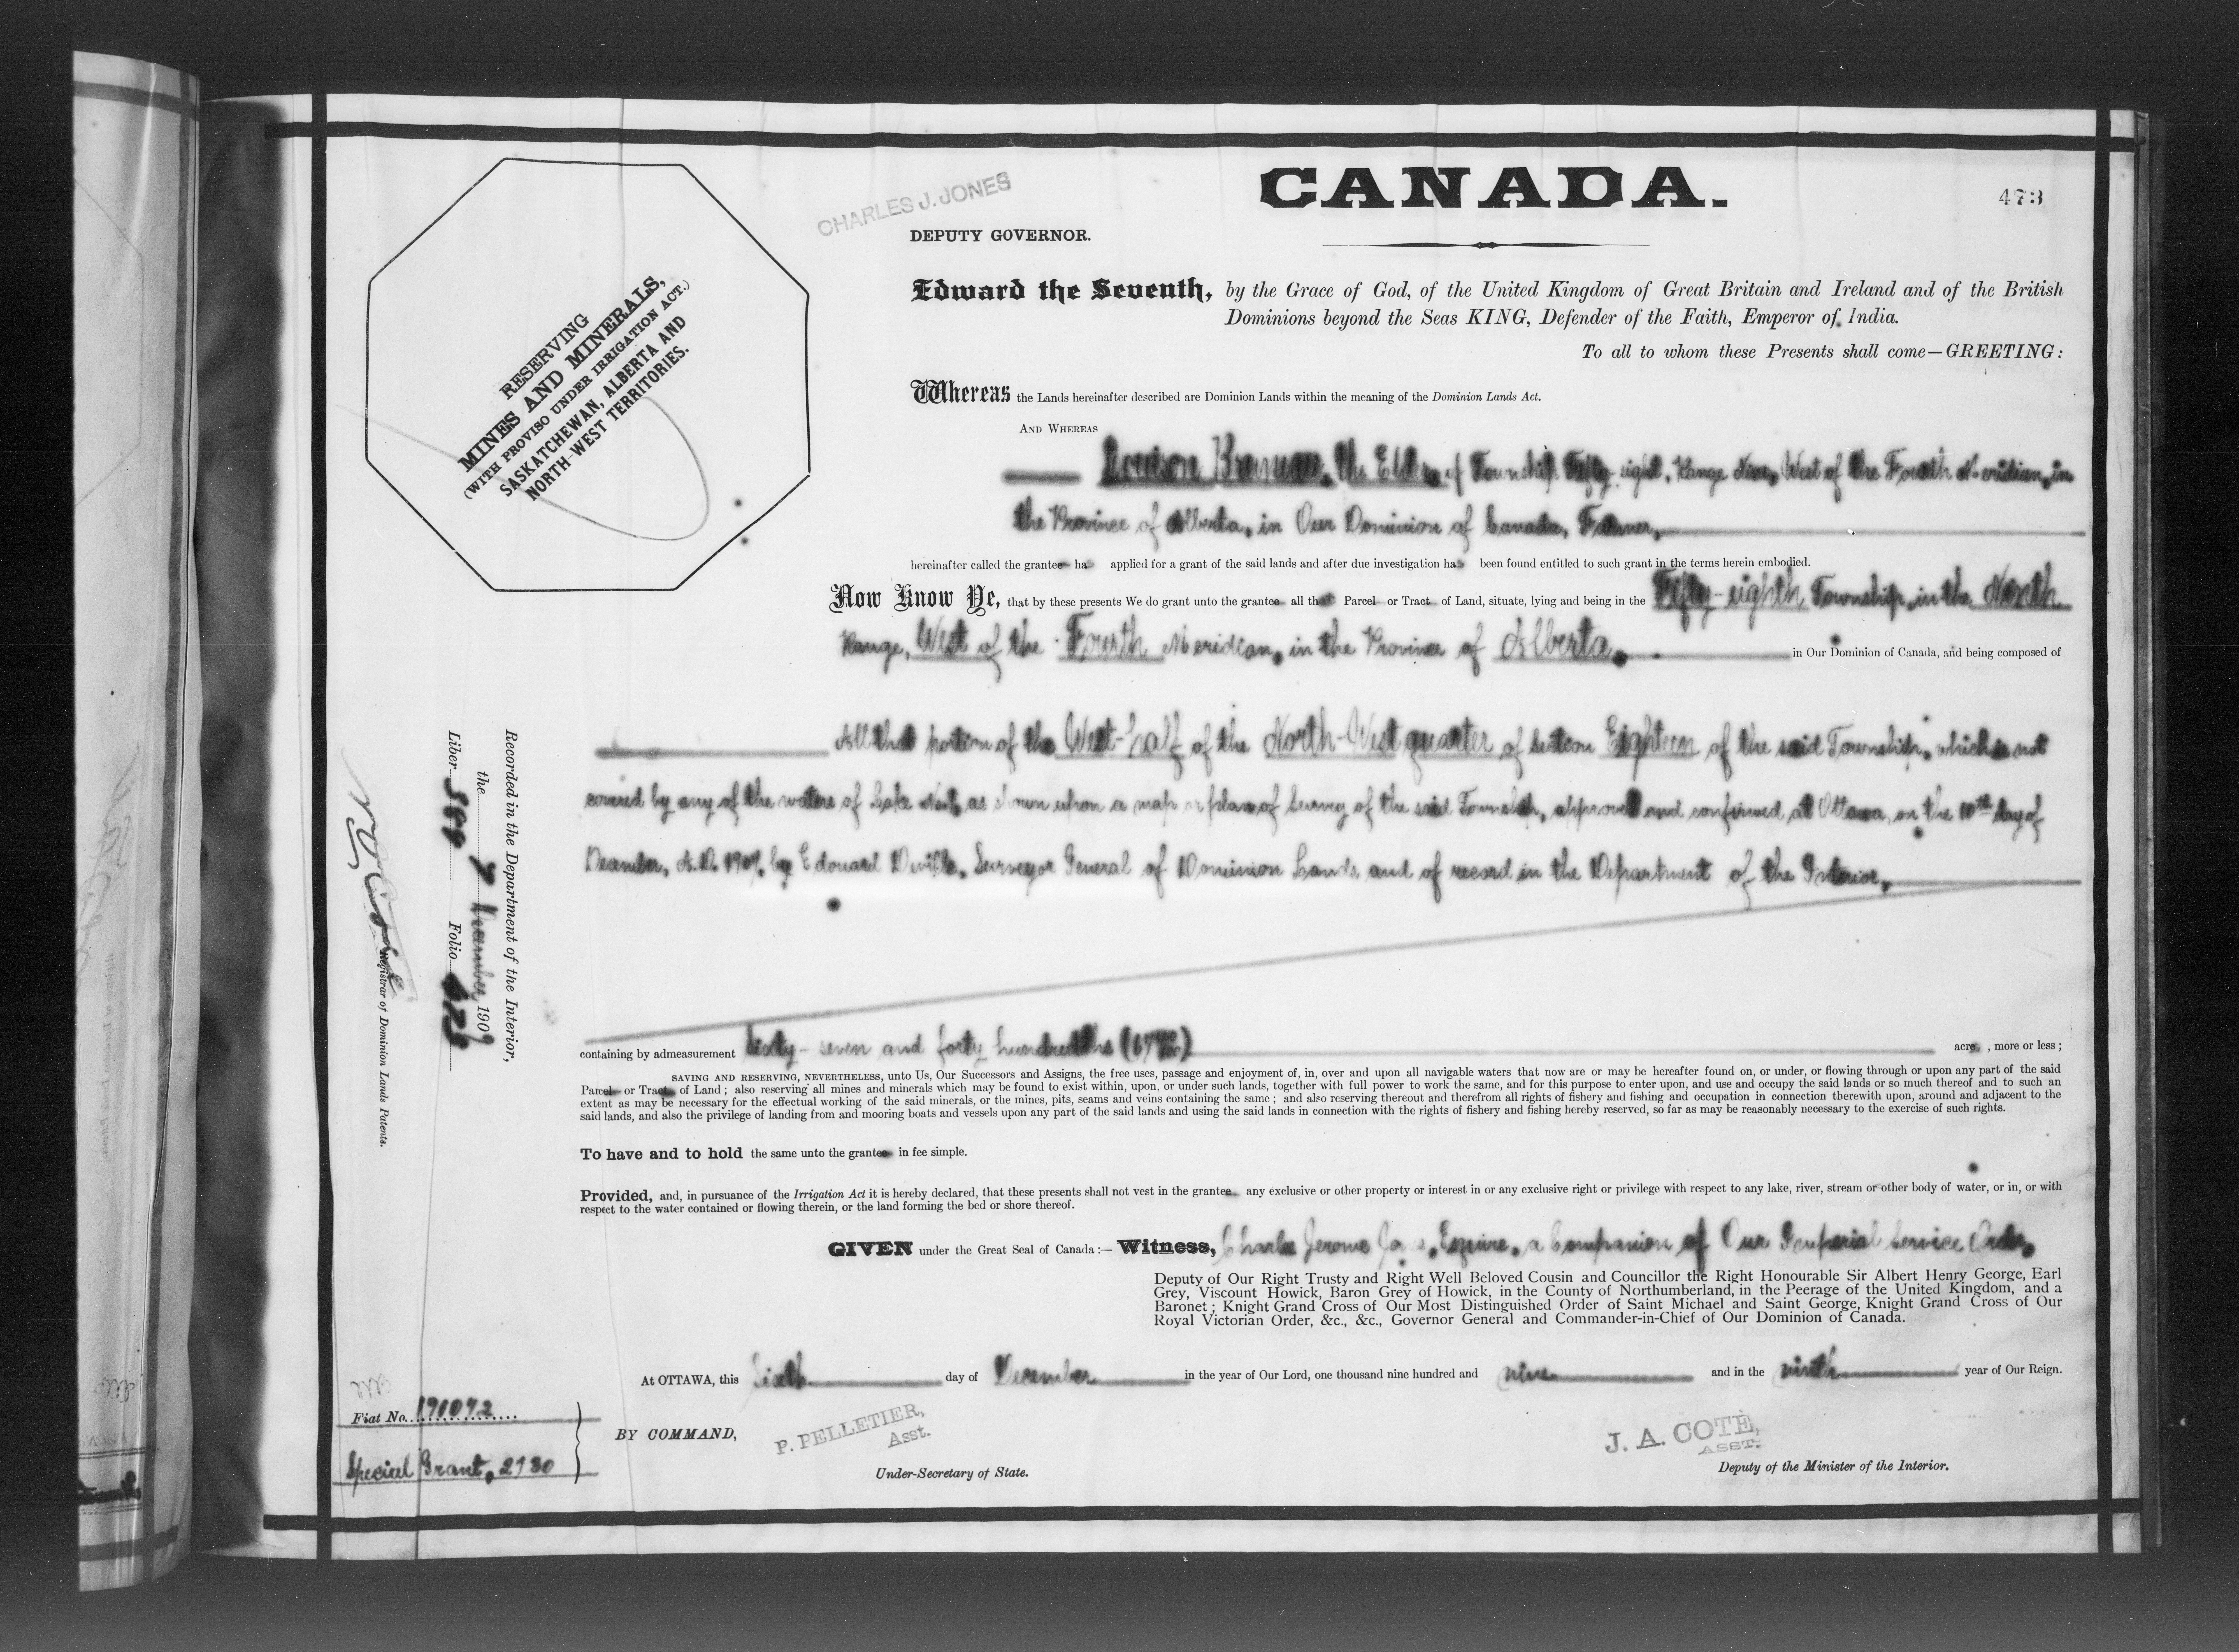 CANADA.
473
CHARLES J. JONES
DEPUTY GOVERNOR.
RESERVING
MINES AND MINERALS,
(WITH PROVISO UNDER IRRIGATION ACT.)
SASKATCHEWAN, ALBERTA AND
NORTH-WEST TERRITORIES.
Edward the Seventh, by the Grace of God, of the United Kingdom of Great Britain and Ireland and of the British
Dominions beyond the Seas KING, Defender of the Faith, Emperor of India.
To all to whom these Presents shall come—GREETING:
Whereas the Lands hereinafter described are Dominion Lands within the meaning of the Dominion Lands Act.
AND WHEREAS
the Elder, of Township Fifty-eight, Range Nine, West of the Fourth Meridian, in
the Province of Alberta, in Our Dominion of Canada, Farmer,
hereinafter called the grantee has applied for a grant of the said lands and after due investigation has been found entitled to such grant in the terms herein embodied.
Now Know Ye, that by these presents We do grant unto the grantee all that Parcel or Tract of Land, situate, lying and being in the Fifty-eighth Township, in the Ninth
Range, West of the Fourth Meridian, in the Province of Alberta, in Our Dominion of Canada, and being composed of
All that portion of the West-half of the North-West quarter of section Eighteen of the said Township, which is not
covered by any of the waters of Lake as shown upon a map or plan of survey of the said Township, approved and confirmed at Ottawa, on the 10th day of
December, A.D. 1907, by Edouard Deville, Surveyor General of Dominion Lands, and of record in the Department of the Interior,
containing by admeasurement Sixty-seven and forty hundredths (67 40/100) acres, more or less;
SAVING AND RESERVING, NEVERTHELESS, unto Us, Our Successors and Assigns, the free uses, passage and enjoyment of, in, over and upon all navigable waters that now are or may be hereafter found on, or under, or flowing through or upon any part of the said
Parcel or Tract of Land; also reserving all mines and minerals which may be found to exist within, upon, or under such lands, together with full power to work the same, and for this purpose to enter upon, and use and occupy the said lands or so much thereof and to such an
extent as may be necessary for the effectual working of the said minerals, or the mines, pits, seams and veins containing the same; and also reserving thereout and therefrom all rights of fishery and fishing and occupation in connection therewith upon, around and adjacent to the
said lands, and also the privilege of landing from and mooring boats and vessels upon any part of the said lands and using the said lands in connection with the rights of fishery and fishing hereby reserved, so far as may be reasonably necessary to the exercise of such rights.
To have and to hold the same unto the grantee in fee simple.
Provided, and, in pursuance of the Irrigation Act it is hereby declared, that these presents shall not vest in the grantee any exclusive or other property or interest in or any exclusive right or privilege with respect to any lake, river, stream or other body of water, or in, or with
respect to the water contained or flowing therein, or the land forming the bed or shore thereof.
GIVEN under the Great Seal of Canada:— Witness, Charles Jerome Jones, Esquire, a Companion of Our Imperial Service Order,
Deputy of Our Right Trusty and Right Well Beloved Cousin and Councillor the Right Honourable Sir Albert Henry George, Earl
Grey, Viscount Howick, Baron Grey of Howick, in the County of Northumberland, in the Peerage of the United Kingdom, and a
Baronet; Knight Grand Cross of Our Most Distinguished Order of Saint Michael and Saint George, Knight Grand Cross of Our
Royal Victorian Order, &c., &c., Governor General and Commander-in-Chief of Our Dominion of Canada.
At OTTAWA, this Sixth day of December in the year of Our Lord, one thousand nine hundred and nine and in the ninth year of Our Reign.
BY COMMAND,
P. PELLETIER,
Asst.
Under-Secretary of State.
J. A. COTÉ,
ASST.
Deputy of the Minister of the Interior.
Recorded in the Department of the Interior,
the 7 December 1909
Liber 389 Folio 473
Registrar of Dominion Lands Patents.
Fiat No. 191092
Special Grant, 2130